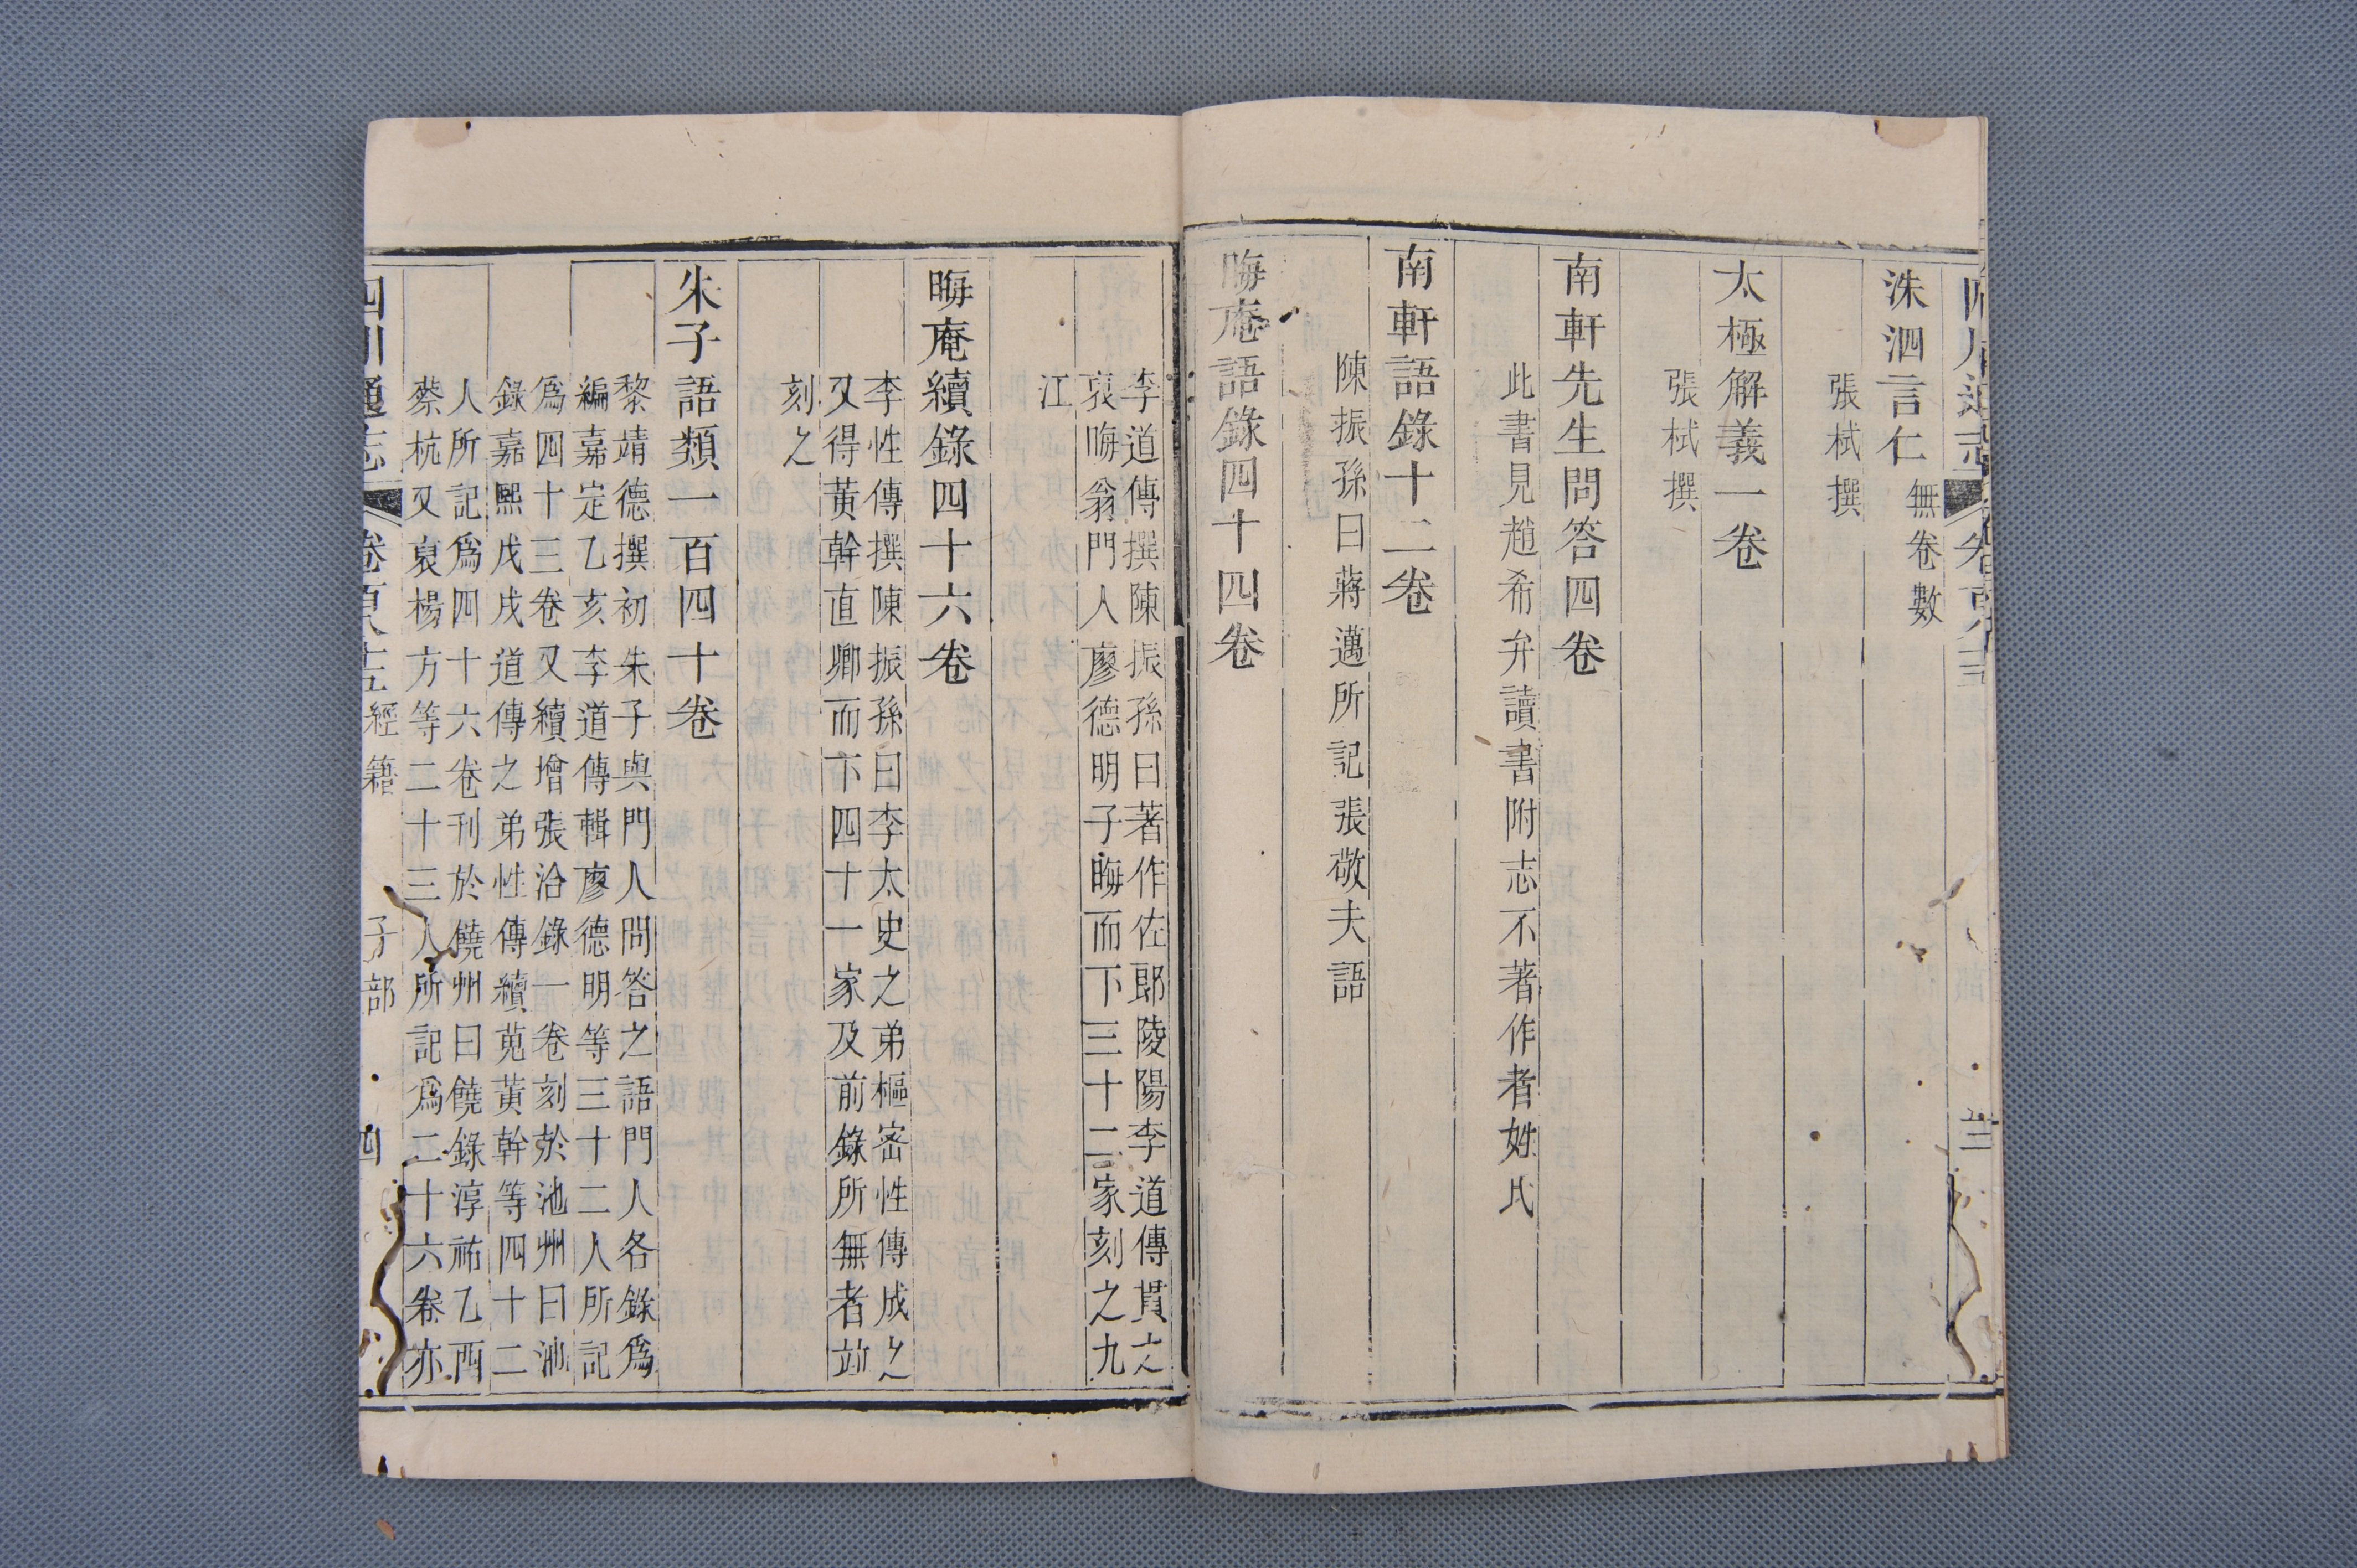 洙泗言仁無卷數
張栻撰
太極解義一卷
張栻撰
南軒先生問答四卷
此書見趙希弁讀書附志不著作者姓氏
南軒語錄十二卷
陳振孫曰蔣邁所記張敬夫語
晦庵語錄四十四卷
李道傳撰陳振孫曰著作佐郎陵陽李道傳貫之
裒晦翁門人廖德明子晦而下三十二家刻之九
江
晦庵續錄四十六卷
李性傳撰陳振孫曰李太史之弟樞密性傳成之
又得黃幹直卿而下四十一家及前錄所無者竝
刻之
朱子語類一百四十卷
黎靖德撰初朱子與門人問答之語門人各錄爲
編嘉定乙亥李道傳輯廖德明等三十二人所記
爲四十三卷又續增張洽錄一卷刻於池州曰池
錄嘉熙戊戌道傳之弟性傳續蒐黃幹等四十二
人所記爲四十六卷刊於饒州曰饒錄淳祐乙酉
蔡杭又裒楊方等二十三人所記爲二十六卷亦
四川通志 卷百八十五 經籍 子部 四